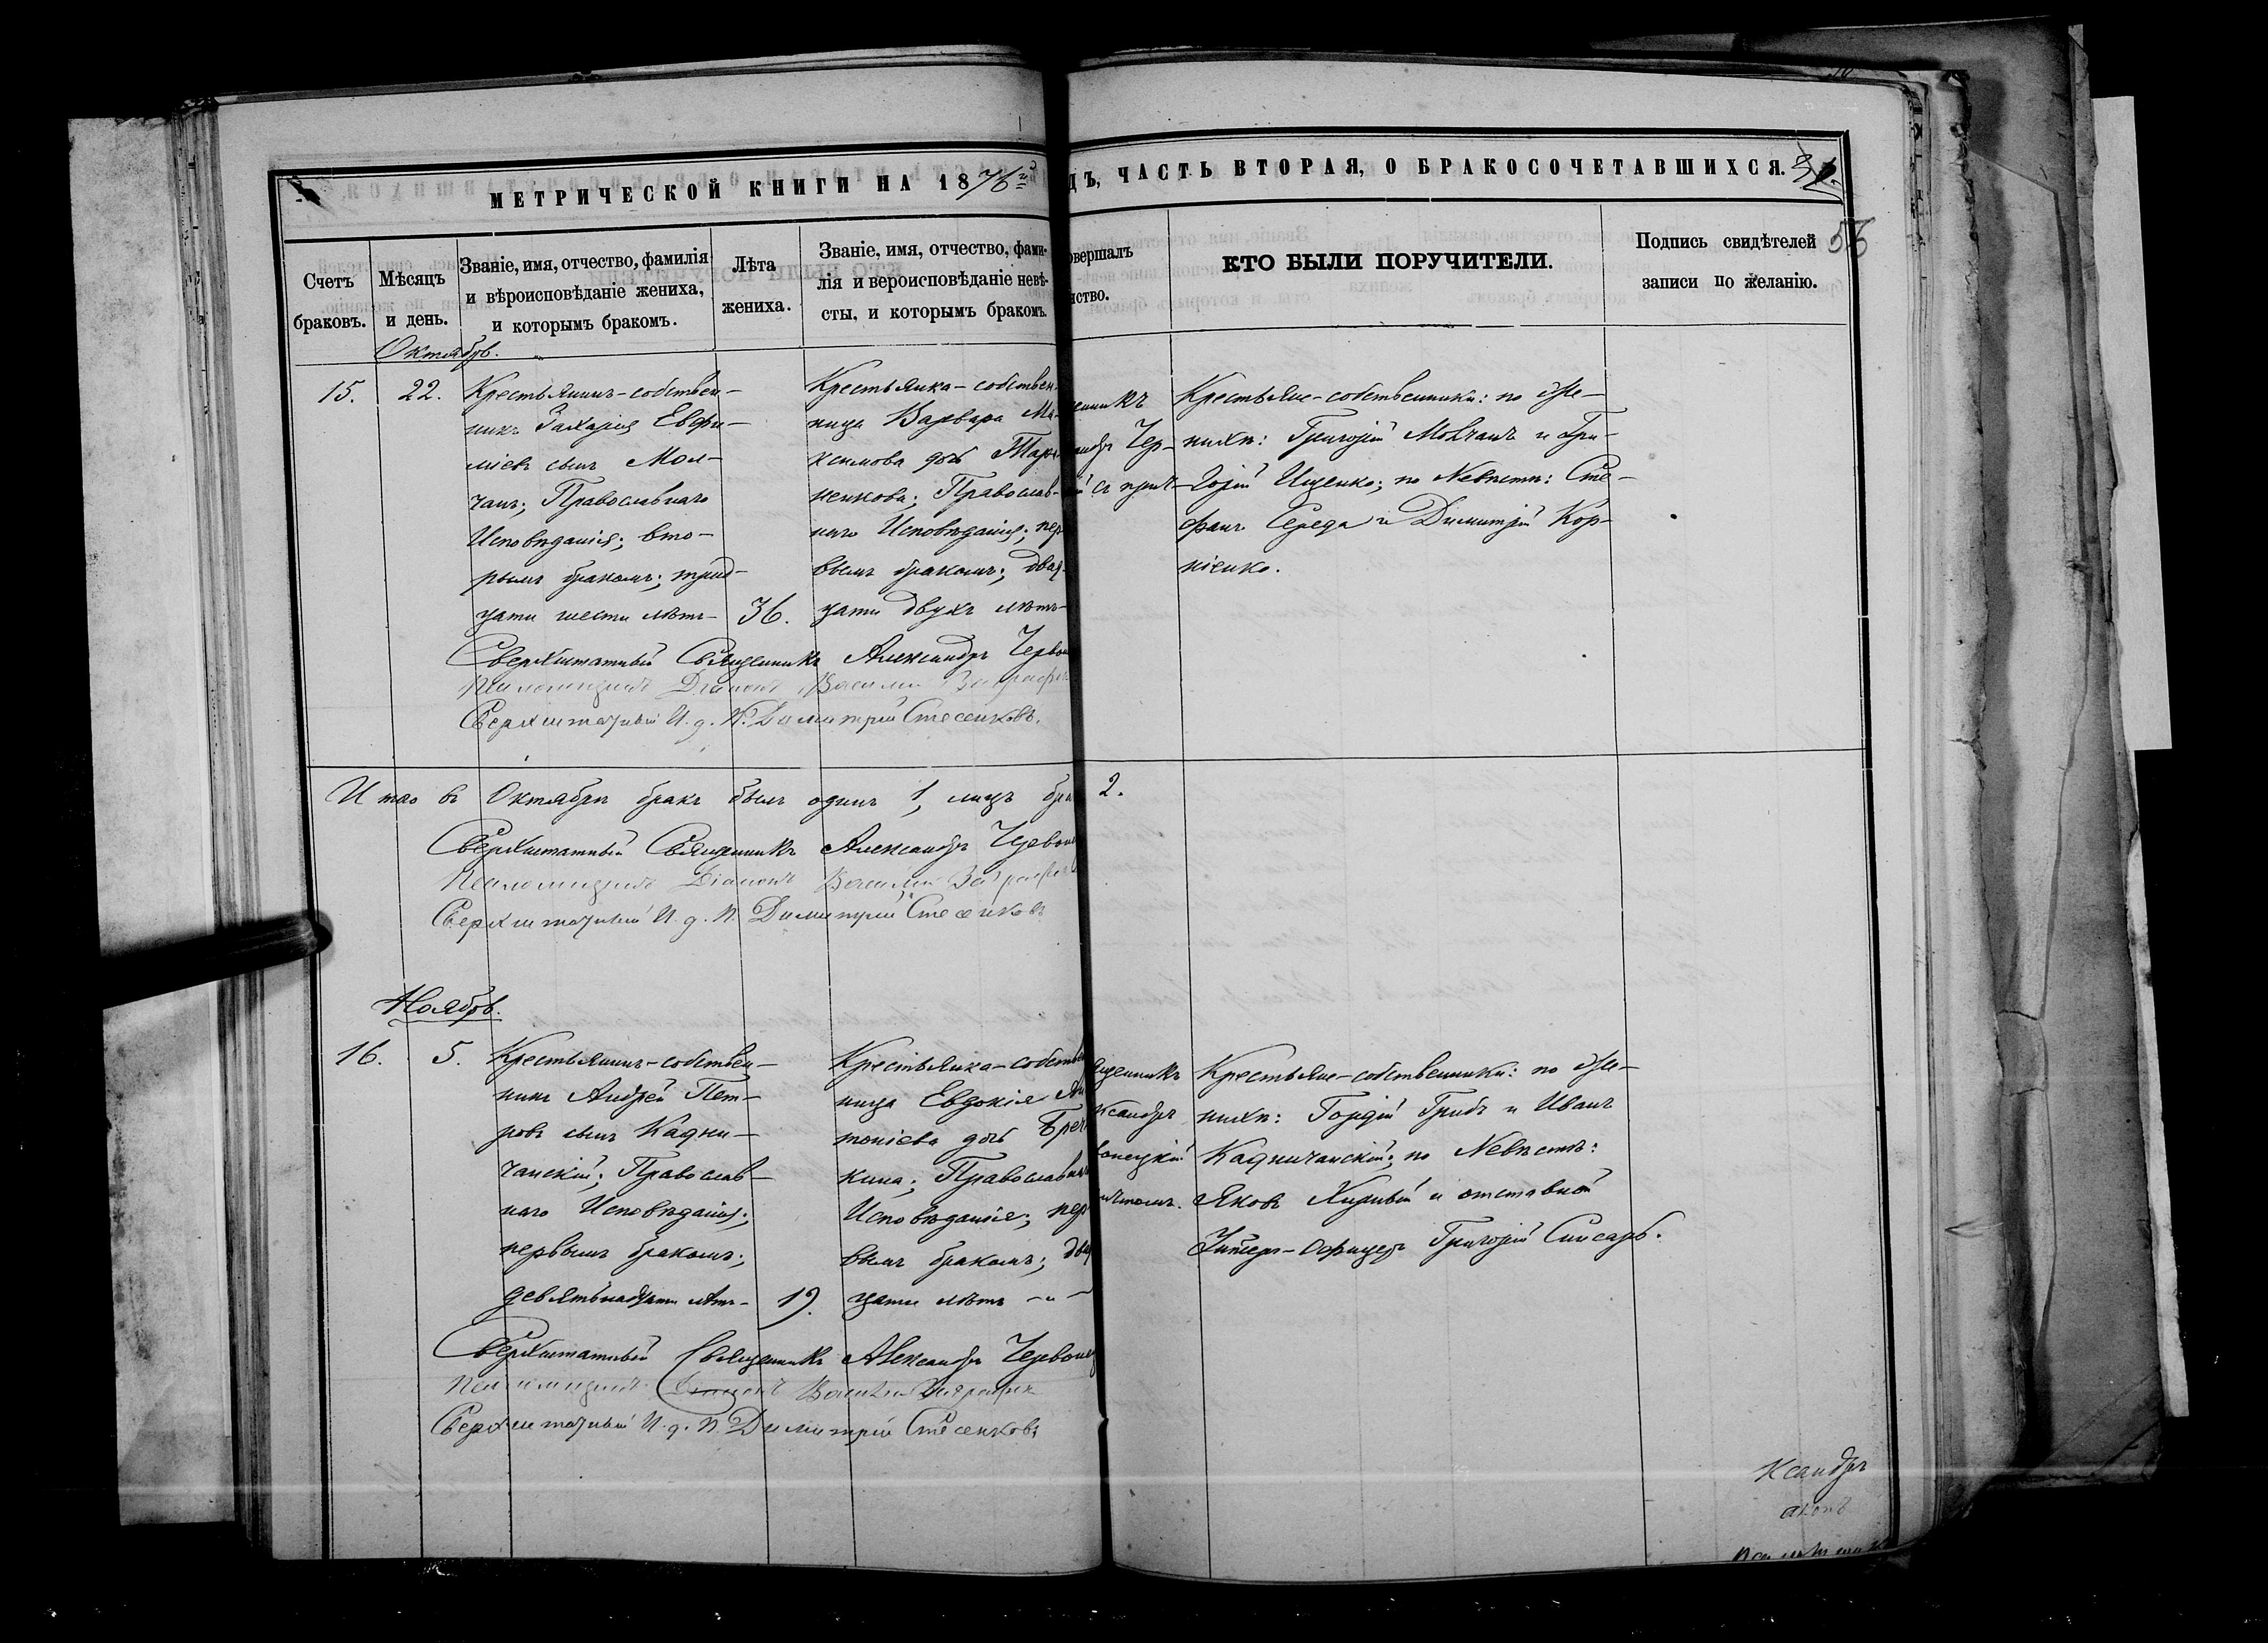 МЕТРИЧЕСКОЙ КНИГИ НА 1876й
ДЪ, ЧАСТЬ ВТОРАЯ, О БРАКОСОЧЕТАВШИХСЯ.
Счетъ браковъ.
Мѣсяцъ и день.
Званіе, имя, отчество, фамилія
и вѣроисповѣданіе жениха,
и которымъ бракомъ.
Лѣта
жениха.
Званіе, имя, отчество, фами-
лія и вероисповѣданіе невѣ-
сты, и которымъ бракомъ.
овершалъ
нство.
КТО БЫЛИ ПОРУЧИТЕЛИ.
Подпись свидѣтелей
записи по желанію.
Октябрь.
15.
22.
Крестьянинъ-собствен-
никъ Захарія Евфи-
міевъ сынъ Мол-
чанъ; Православнаго
Исповѣданія; вто-
рымъ бракомъ; трид-
цати шести лѣтъ-
36.
Крестьянка-собствен-
ница Варвара Ма-
ксимова дочь
ненкова; Православ-
наго Исповѣданія; пер
вымъ бракомъ; двад-
цати двухъ лѣтъ-
енникъ
андръ Чер-
й съ прич-
Крестьяне-собственники: по Же-
нихѣ: Григорій Молчанъ и Гри-
горій Ищенко; по Невѣстѣ: Сте-
фанъ Середа и Димитрій Кор-
ніенко.
Сверхштатный Священникъ Александръ Червон
Псаломщикъ Діаконъ Василій
Сверхштатный И. д. П. Димитрій Стесенковъ.
Итого въ Октябрѣ бракъ былъ одинъ 1, лицъ бра
2.
Сверхштатный Священникъ Александръ Червонец
Псаломщикъ Діаконъ Василій
Сверхштатный И. д. П. Димитрій Стесенковъ
Ноябрь.
16.
5.
Крестьянинъ-собствен-
никъ Андрей Пет-
ровъ сынъ Кадни-
чанскій; Православ-
наго Исповѣданія;
первымъ бракомъ;
девятьнадцати лѣтъ-
19.
Крестьянка-собствен
ница Евдокія Ан
тоніева дочь
кина; Православнаго
Исповѣданіе; пер
вымъ бракомъ; два
цати лѣтъ - " -
ященникъ
ксандръ
вонецкій
ичтомъ.
Крестьяне-собственники: по Же-
нихѣ: Гордій Грибъ и Иванъ
Кадничанскій; по Невѣстѣ:
Яковъ и отставной
Унтеръ-Офицеръ Григорій Слисарь.
Сверхштатный Священникъ Александръ Червонец
Псаломщикъ Діаконъ Василій
Сверхштатный И. д. П. Димитрій Стесенковъ
ксандръ
аконъ